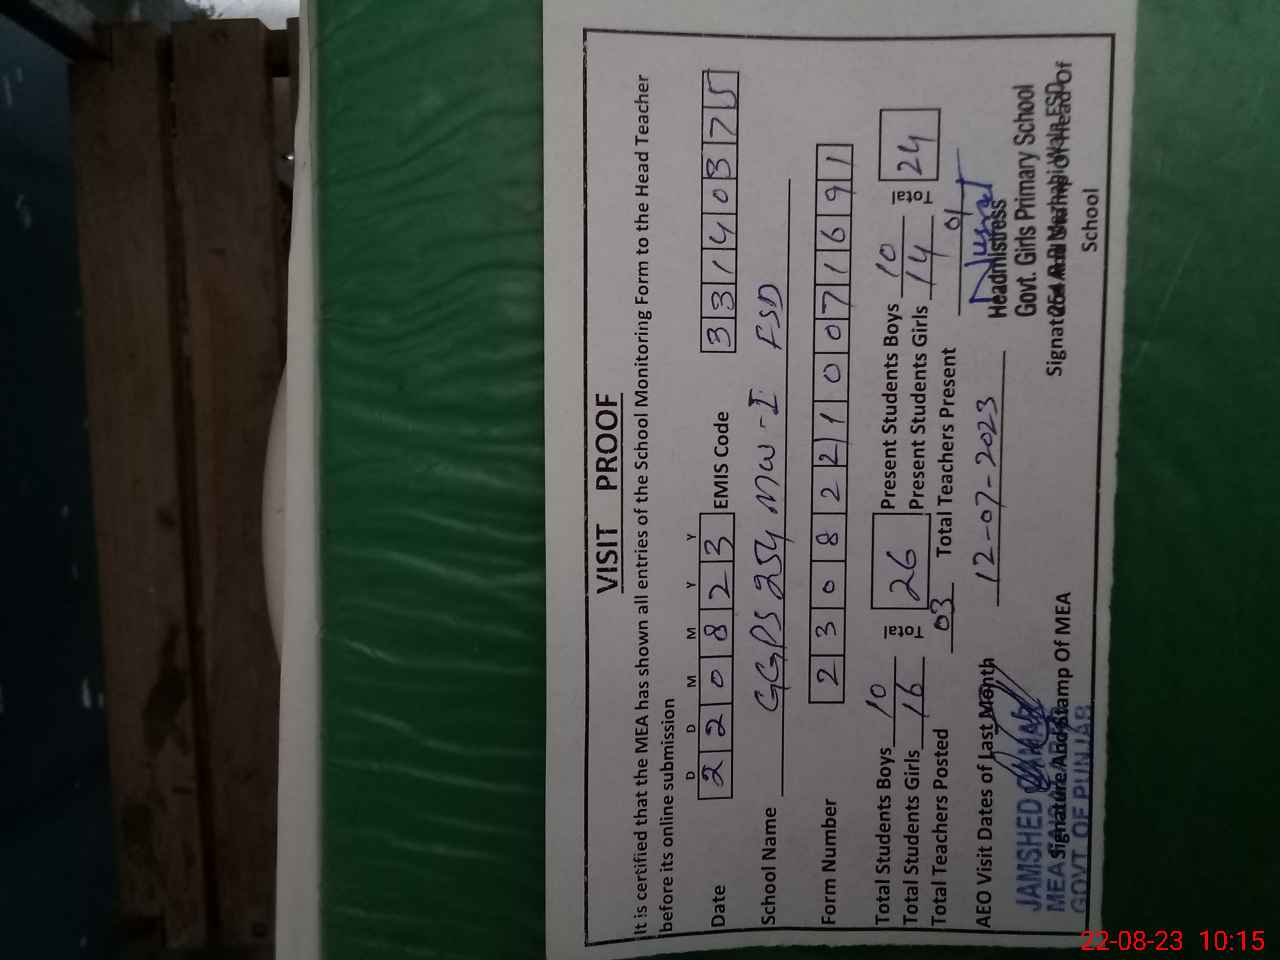 VISIT PROOF
It is certified that the MEA has shown all entries of the School Monitoring Form to the Head Teacher
before its online submission
D D M M Y Y
Date 2 2 0 8 2 3 EMIS Code 3 3 1 4 0 3 7 5
School Name GGPS 254 MW-I FSD
Form Number 2 3 0 8 2 2 1 0 0 7 1 6 9 1
Total Students Boys 10 Total 26 Present Students Boys 10 Total 24
Total Students Girls 16 Present Students Girls 14
Total Teachers Posted 03 Total Teachers Present 01
AEO Visit Dates of Last Month 12-07-2023
Nusrat
Headmistress
Govt. Girls Primary School
JAMSHED
MEA
Signature And Stamp Of MEA
GOVT OF PUNJAB
Signature And Stamp Of Head Of
School
22-08-23 10:15